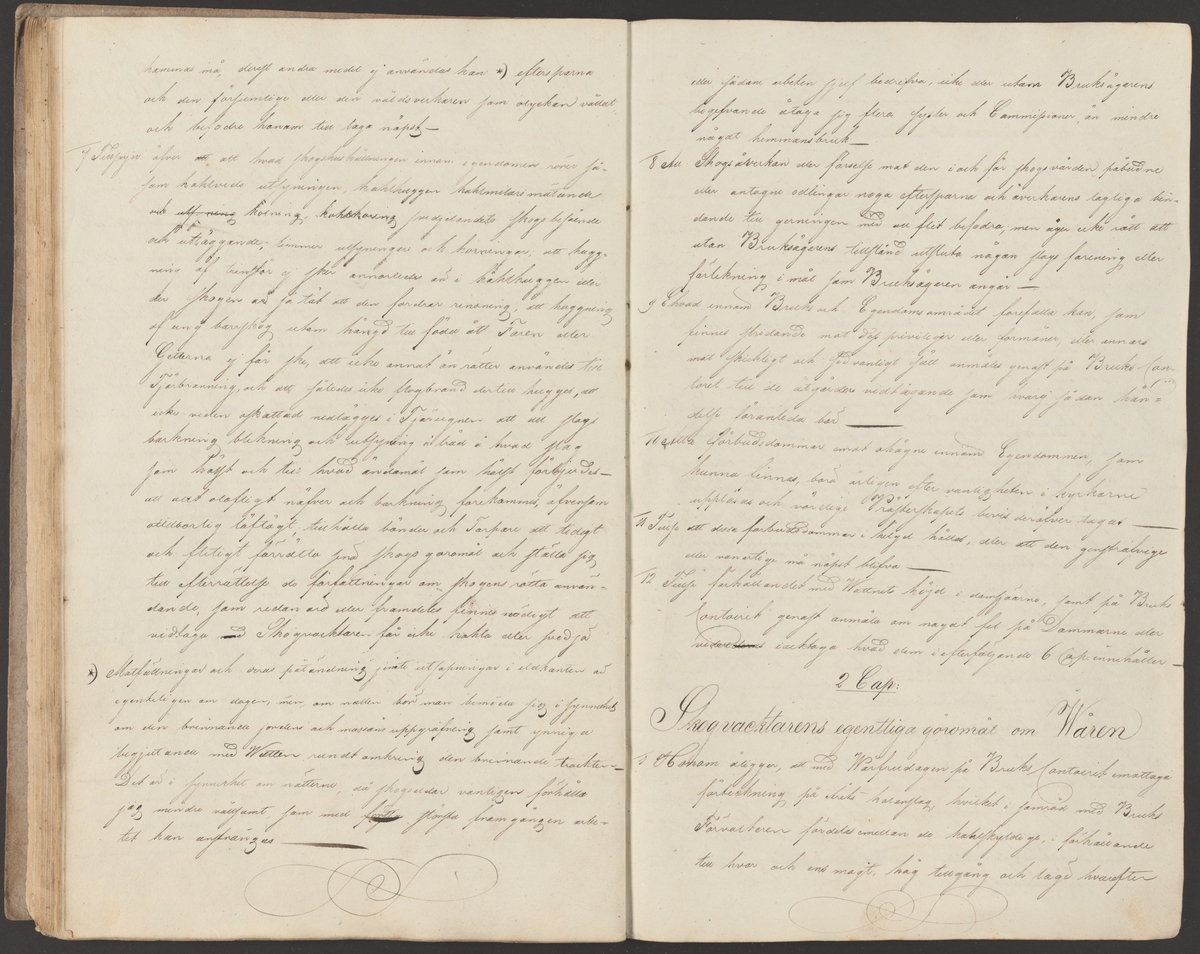 hämmas må, derest andra medel ej användas kan *) efterspana
och den försumlige eller den våldsverkaren som olyckan vållat
och befodre honom till laga näpst —
7 Tillsyn öfver att, att hvad skogshushållningen innom egendomen rörer så-
som kohlveds utsyningen, kohlhuggen kohlmilare mätande
och utsyning kolning, kohlkörning svedjelandets skogs besående
och utläggande, timmer utsyningar och körningar, att hugg-
ning af timster ej sker annorledes än i kohlhuggen eller
der skogen är så tät att den fordrar rensning, att huggning
af ung barrskog utom hängd till föda åt Fåren eller
Getterna ej får ske, att icke annat än rötter användes till
Tjärbränning, och att således icke skogbrand dertill hugges, att
icke veden oskattad nedlägges i Tjärugnen att all slags
barkning blekning och utsyning
som hälst och till hvad ändamål som hälst förbjudes —
att allt olofligt näfver och barkning förekommes, äfvensom
olldborlig löftägt tillhålla bönder och Torpare att tidigt
och flitigt förrätta sine skogs göromål och ställa sig
till efterrättelse de författningar om skogens rätta använ-
dande, som redan äro eller framdeles finnes nödigt att
vidtaga Skogvacktaren får icke hålla eller svedja
*) Motfällningar och deras påtändning jemte utsläpningar i eldkanten är
egenteligen om dagen, men om natten bör man bemöda sig i synnerhet
om den brinnande jordens och mossans uppgräfning samt ymniga
begjutande med Watten rundt omkring den brinnande trackten —
Det är i synnerhet om nätterne, då skogseldar vanligen förhålla
sig mindre våldsamt som med största framgången arbe-
tet kan ansträngas —
eller sådane arbeten sjelf bedrifva, icke eller utom Bruksägarens
begifvande åtaga sig flera sysslor och Commissioner, än mindre
någdt hemmansbruk —
8 All Skogsåverkan eller förseelse mot den i och för skogsvården påbudne
eller antagne odlingar noga efterspana och åverkarens lagliga bin-
dande till gerningen med all flit befodra, men äger icke rätt att
utan Bruksägarens tillstånd ifsluta någon slags förening eller
förlikning i mål som Bruksägaren angår —
9 Ehvad innom Bruk och Egendoms området förefalla kan, som
finnes stridande mot dess privilegier eller förmåner, eller annars
mot skickligt och sedvanligt sätt anmäles genast på Bruks Con-
toret till de åtgärders vidtagande som hvarj sådan hän=
delse föranleda bör —
10 Alla Förbudsdommar emot ohägne innom Egendommen, som
kunna finnas, böra årligen efter vanligheten i kyrkorne
uppläsas och vördige Prästerskapets bevis deröfver tagas —
11 Tillse att dessa förbudsdommar i helgd hålles, eller att den genstræfvige
eller vanartige må näpst blifva —
12 Tillse förhållandet med Wattnets höjd i damsjöarna, samt på Bruks
Contoiret genast anmäla om någat fel på Dammarne eller
videre iacktaga hvad dem i efterföljande 6 Cap. innehåller —
2 Cap:
Skogvacktarens egentliga göromål om Wåren
§ Honom åligger, att med Wårfrudagen på Bruks Contoiret emottaga
förteckning på Årets kolanslag, hvilket i samråd med Bruks
Förvaltaren fördelas emellan de kohlskyldige, i förhållande
till hvar och ens magt, håg tillgång och läge hvarefter